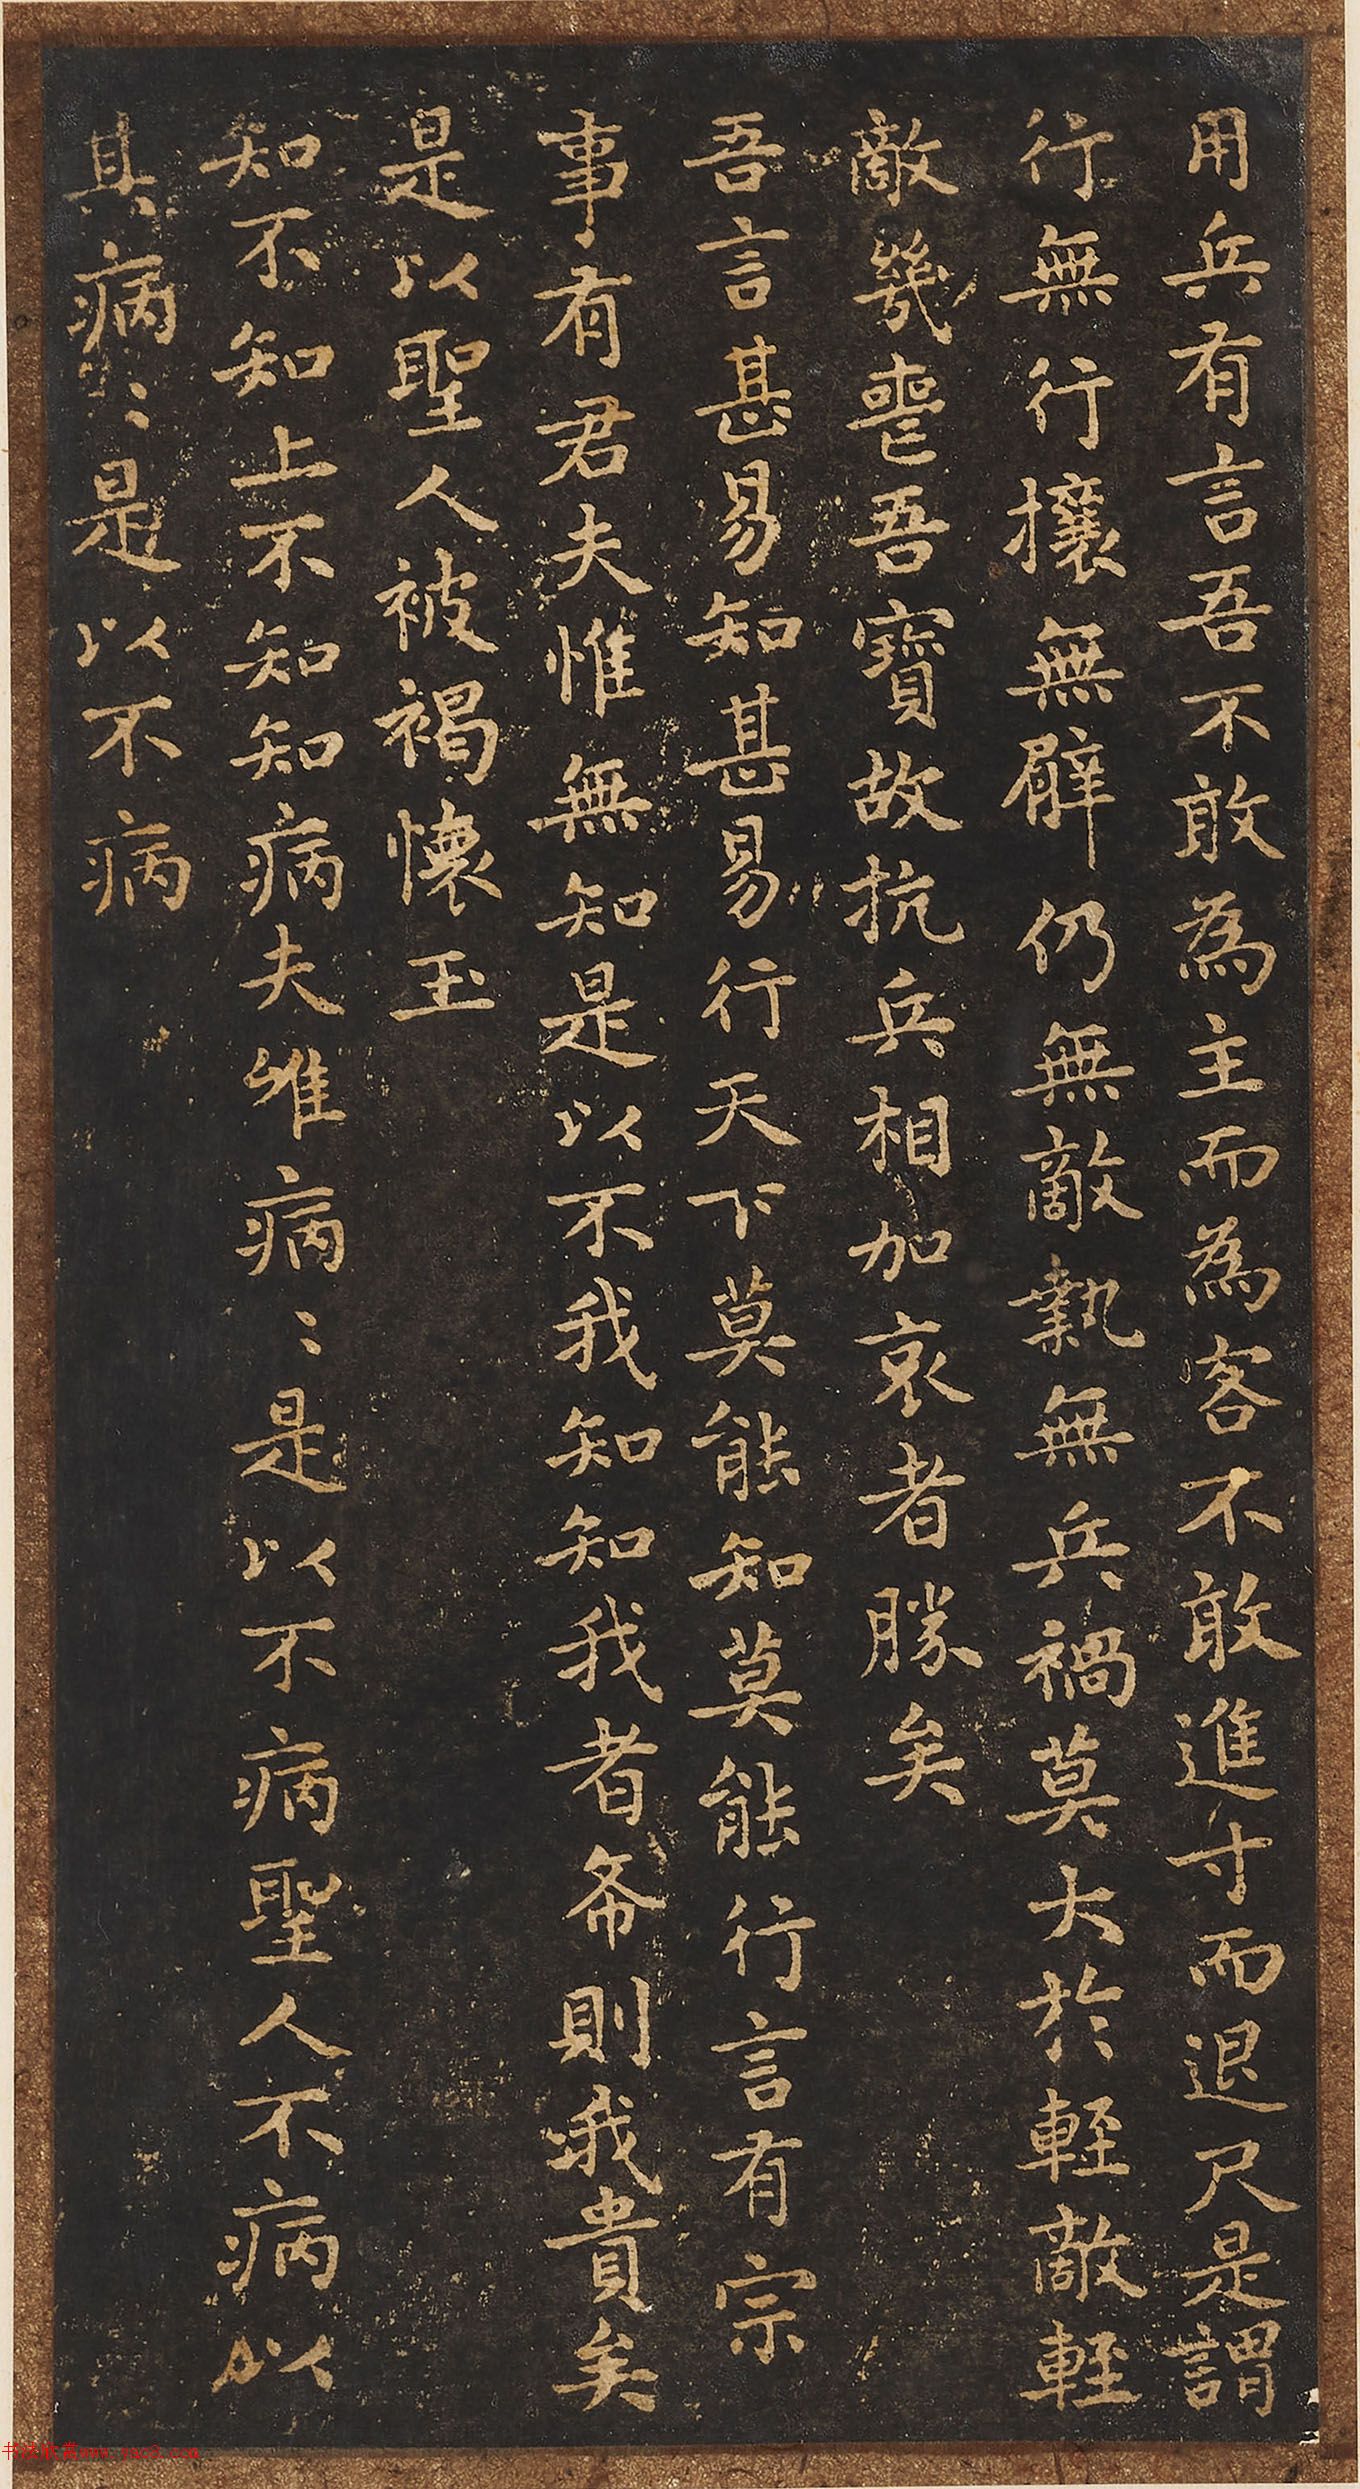 用兵有言吾不敢為主而為客不敢進寸而退尺是謂
行無行攘無臂仍無敵執無兵禍莫大於輕敵輕
敵幾喪吾寶故抗兵相加哀者勝矣
吾言甚易知甚易行天下莫能知莫能行言有宗
事有君夫惟無知是以不我知知我者希則我貴矣
是以聖人被褐懷玉
知不知上不知知病夫唯病〻是以不病聖人不病以
其病〻是以不病
书法欣赏www.yac8.com